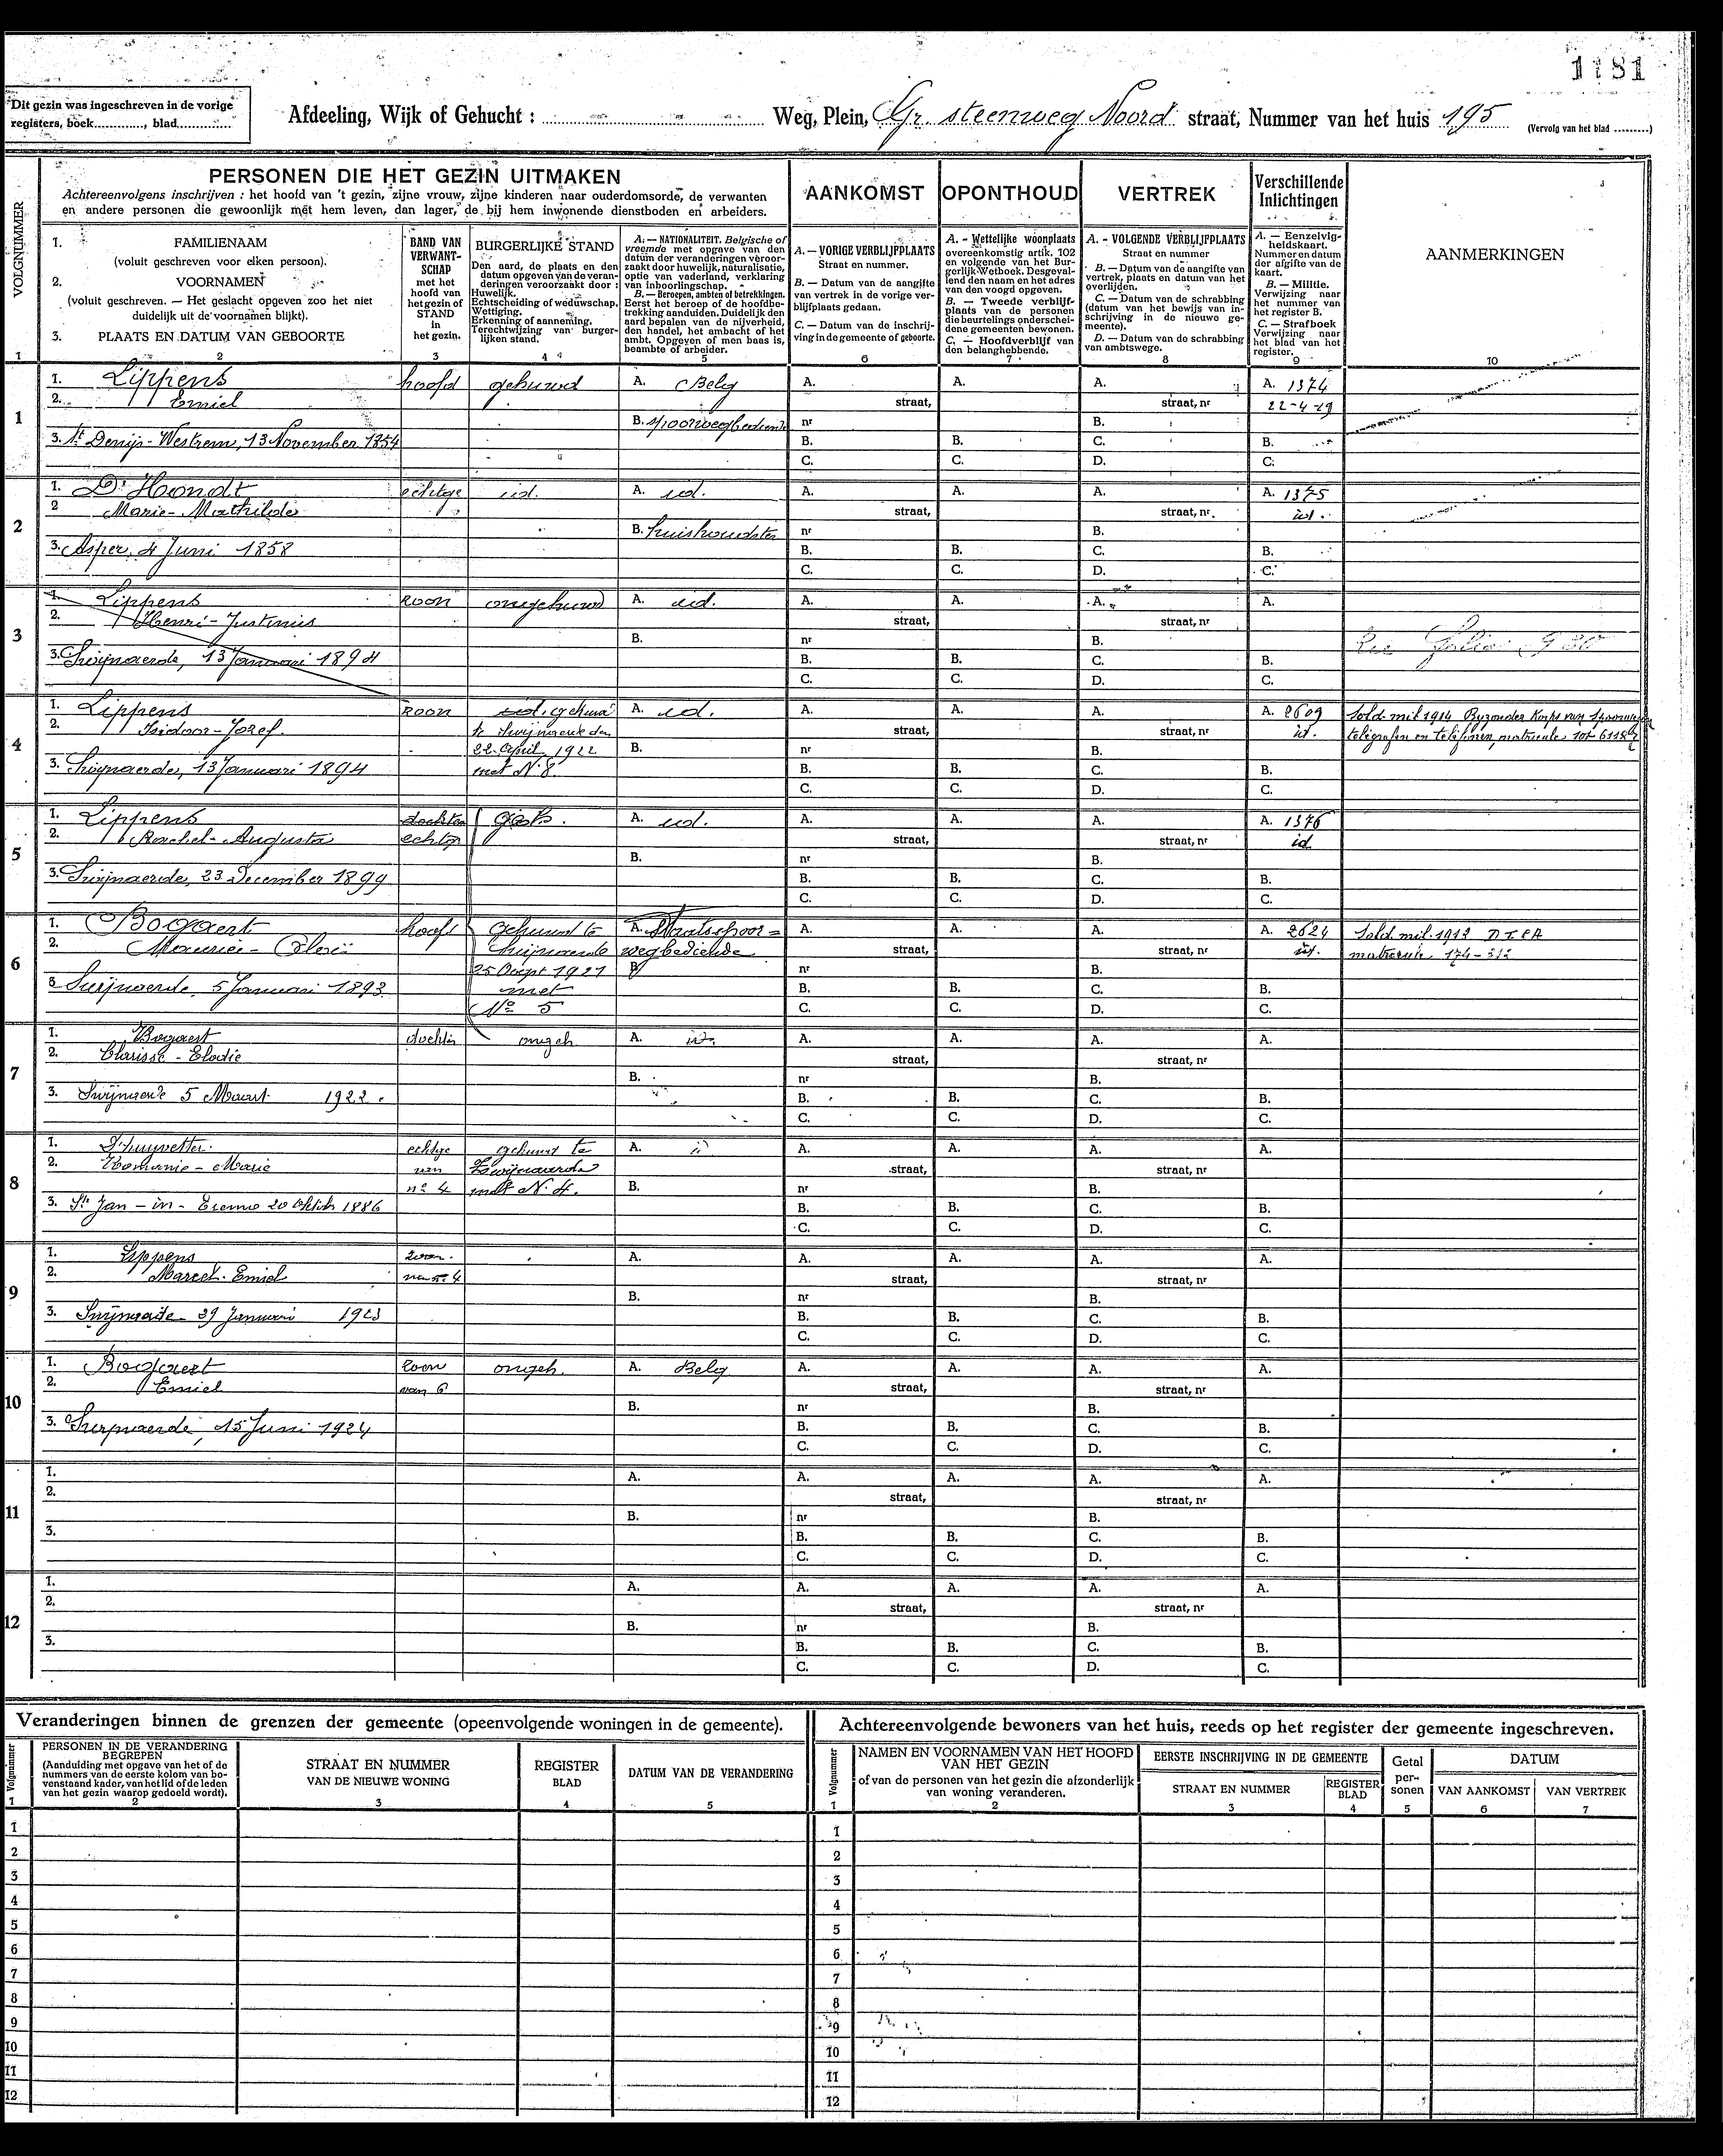 1181
Dit gezin was ingeschreven in de vorige
registers, boek............, blad..............
Afdeeling, Wijk of Gehucht :
Weg, Plein, Gr. steenweg Noord straat, Nummer van het huis 195
(Vervolg van het blad .........)
VOLGNUMMER
PERSONEN DIE HET GEZIN UITMAKEN
Achtereenvolgens inschrijven : het hoofd van 't gezin, zijne vrouw, zijne kinderen naar ouderdomsorde, de verwanten
en andere personen die gewoonlijk met hem leven, dan lager, de bij hem inwonende dienstboden en arbeiders.
1. FAMILIENAAM
(voluit geschreven voor elken persoon).
2. VOORNAMEN
(voluit geschreven. — Het geslacht opgeven zoo het niet
duidelijk uit de voornamen blijkt).
3. PLAATS EN DATUM VAN GEBOORTE
BAND VAN
VERWANT-
SCHAP
met het
hoofd van
het gezin of
STAND
in
het gezin.
BURGERLIJKE STAND
Den aard, de plaats en den
datum opgeven van de veran-
deringen veroorzaakt door :
Huwelijk.
Echtscheiding of weduwschap.
Wettiging.
Erkenning of aanneming.
Terechtwijzing van burger-
lijken stand.
A. — NATIONALITEIT. Belgische of
vreemde met opgave van den
datum der veranderingen veroor-
zaakt door huwelijk, naturalisatie,
optie van vaderland, verklaring
van inboorlingschap.
B. — Beroepen, ambten of betrekkingen.
Eerst het beroep of de hoofdbe-
trekking aanduiden. Duidelijk den
aard bepalen van de nijverheid,
den handel, het ambacht of het
ambt. Opgeven of men baas is,
beambte of arbeider.
AANKOMST
A. — VORIGE VERBLIJFPLAATS
Straat en nummer.
B. — Datum van de aangifte
van vertrek in de vorige ver-
blijfplaats gedaan.
C. — Datum van de inschrij-
ving in de gemeente of geboorte.
OPONTHOUD
A. - Wettelijke woonplaats
overeenkomstig artik. 102
en volgende van het Bur-
gerlijk Wetboek. Desgeval-
lend den naam en het adres
van den voogd opgeven.
B. — Tweede verblijf-
plaats van de personen
die beurtelings onderschei-
dene gemeenten bewonen.
C. — Hoofdverblijf van
den belanghebbende.
VERTREK
A. - VOLGENDE VERBLIJFPLAATS
Straat en nummer
B. — Datum van de aangifte van
vertrek, plaats en datum van het
overlijden.
C. — Datum van de schrabbing
(datum van het bewijs van in-
schrijving in de nieuwe ge-
meente).
D. — Datum van de schrabbing
van ambtswege.
Verschillende
Inlichtingen
A. — Eenzelvig-
heidskaart.
Nummer en datum
der afgifte van de
kaart.
B. — Militie.
Verwijzing naar
het nummer van
het register B.
C. — Strafboek
Verwijzing naar
het blad van het
register.
AANMERKINGEN
1 2 3 4 5 6 7 8 9 10
1
1. Lippens hoofd gehuwd A. Belg A. A. A. A. 1374
2. Emiel straat, straat, nr 22-4-19
B. spoorwegbediende nr B.
3. St Denijs-Westrem, 13 November 1854 B. B. C. B.
C. C. D. C.
2
1. D'Hondt echtge id. A. id. A. A. A. A. 1375
2 Marie-Mathilde straat, straat, nr. id.
B. huishoudster nr B.
3. Asper, 4 Juni 1858 B. B. C. B.
C. C. D. C.
3
1. Lippens zoon ongehuwd A. id. A. A. A. A.
2. Henri-Justinus straat, straat, nr
B. nr B.
3. Swijnaerde, 13 Januari 1894 B. B. C. B.
C. C. D. C.
4
1. Lippens zoon id. gehuwd A. id. A. A. A. A. 2609 Sold. mil 1914 Byzonder Korps van
2. Isidoor-Jozef. te Swijnaerde den straat, straat, nr id. telegrafen en telefonen, matricule
22 April 1922 B. nr B.
3. Swijnaerde, 13 Januari 1894 met N. 8. B. B. C. B.
C. C. D. C.
5
1. Lippens dochter A. id. A. A. A. A. 1376
2. Rachel-Augusta echtge straat, straat, nr id
B. nr B.
3. Swijnaerde, 23 December 1899 B. B. C. B.
C. C. D. C.
6
1. Bogaert hoofd gehuwd te A. Staatsspoor= A. A. A. A. 2624 Sold. mil. 1913
2. Swijnaerde wegbediende straat, straat, nr id. matricule 174-
1921 B. nr B.
3 Swijnaerde, 5 Januari 1893 met B. B. C. B.
No 5 C. C. D. C.
7
1. Bogaert dochter ongeh A. id. A. A. A. A.
2. Clarisse-Elodie straat, straat, nr
B. nr B.
3. Swijnaerde 5 Maart 1922. B. B. C. B.
C. C. D. C.
8
1. echtge gehuwd te A. A. A. A. A.
2. Romanie-Marie van Zwijnaerde straat, straat, nr
no 4 met N. 4. B. nr B.
3. St Jan-in-Eremo 20 1886 B. B. C. B.
C. C. D. C.
9
1. Lippens zoon. A. A. A. A. A.
2. Marcel-Emiel van n. 4 straat, straat, nr
B. nr B.
3. Swijnaerde 29 Januari 1923 B. B. C. B.
C. C. D. C.
10
1. Bogaert zoon ongeh. A. Belg A. A. A. A.
2. Emiel van 6 straat, straat, nr
B. nr B.
3. Swijnaerde, 15 Juni 1924 B. B. C. B.
C. C. D. C.
11
1. A. A. A. A. A.
2. straat, straat, nr
B. nr B.
3. B. B. C. B.
C. C. D. C.
12
1. A. A. A. A. A.
2. straat, straat, nr
B. nr B.
3. B. B. C. B.
C. C. D. C.
Veranderingen binnen de grenzen der gemeente (opeenvolgende woningen in de gemeente).
Volgnummer
PERSONEN IN DE VERANDERING
BEGREPEN
(Aanduiding met opgave van het of de
nummers van de eerste kolom van bo-
venstaand kader, van het lid of de leden
van het gezin waarop gedoeld wordt).
STRAAT EN NUMMER
VAN DE NIEUWE WONING
REGISTER
BLAD
DATUM VAN DE VERANDERING
1 2 3 4 5
1
2
3
4
5
6
7
8
9
10
11
12
Achtereenvolgende bewoners van het huis, reeds op het register der gemeente ingeschreven.
Volgnummer
NAMEN EN VOORNAMEN VAN HET HOOFD
VAN HET GEZIN
of van de personen van het gezin die afzonderlijk
van woning veranderen.
EERSTE INSCHRIJVING IN DE GEMEENTE
STRAAT EN NUMMER
REGISTER
BLAD
Getal
per-
sonen
DATUM
VAN AANKOMST
VAN VERTREK
1 2 3 4 5 6 7
1
2
3
4
5
6
7
8
9
10
11
12